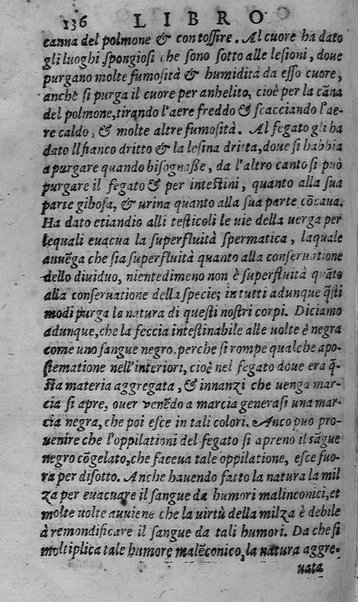 136 LIBRO
canna del polmone & con tossire. Al cuore ha dato
gli luoghi spongiosi che sono sotto alle lesioni, doue
purgano molte fumosità & humidità da esso cuore,
anchè si purga il cuore per anhelito, cioè per la cāna
del polmone, tirando l'aere freddo & scacciando l'ae-
re caldo; & molte altre fumosità. Al fegato gli ha
dato il fianco dritto & la lesina drita, doue si habbia
a purgare quando bisognasse, da l'altro canto si può
purgare il fegato & per intestini, quanto alla sua
parte gibosa, & urina quanto alla sua parte cōcaua.
Ha dato etiandio alli testicoli le uie della uerga per
lequali euacua la superfluità spermatica, laquale
auuēga che sia superfluità quanto alla conseruatione
dello diuiduo, nientedimeno non è superfluità quāto
alla conseruatione della specie; in tutti adunque q̄sti
modi purga la natura di questi nostri corpi. Diciamo
adunque, che la feccia intestinabile alle uolte è negra
come uno sangue negro. perche si rompe qualche apo-
stematione nell'interiori, cioè nel fegato doue era que
sta materia aggregata, & innanzi che uenga mar-
cia si apre, ouer venēdo a marcia generasi una mar
cia negra, che poi esce in tali colori. Anco puo pro-
uenire che l'oppilationi del fegato si apreno il sāgue
negro cōgelato, che faceua tale oppilatione, esce fuo-
ra per disotto. Anche hauendo fatto la natura la mil
za per euacuare il sangue da humori malinconici, et
molte uolte auuiene che la uirtù della milza è debile
à remondificare il sangue da tali humori. Da che si
moltiplica tale humore malēconico, la natura aggre-
uata